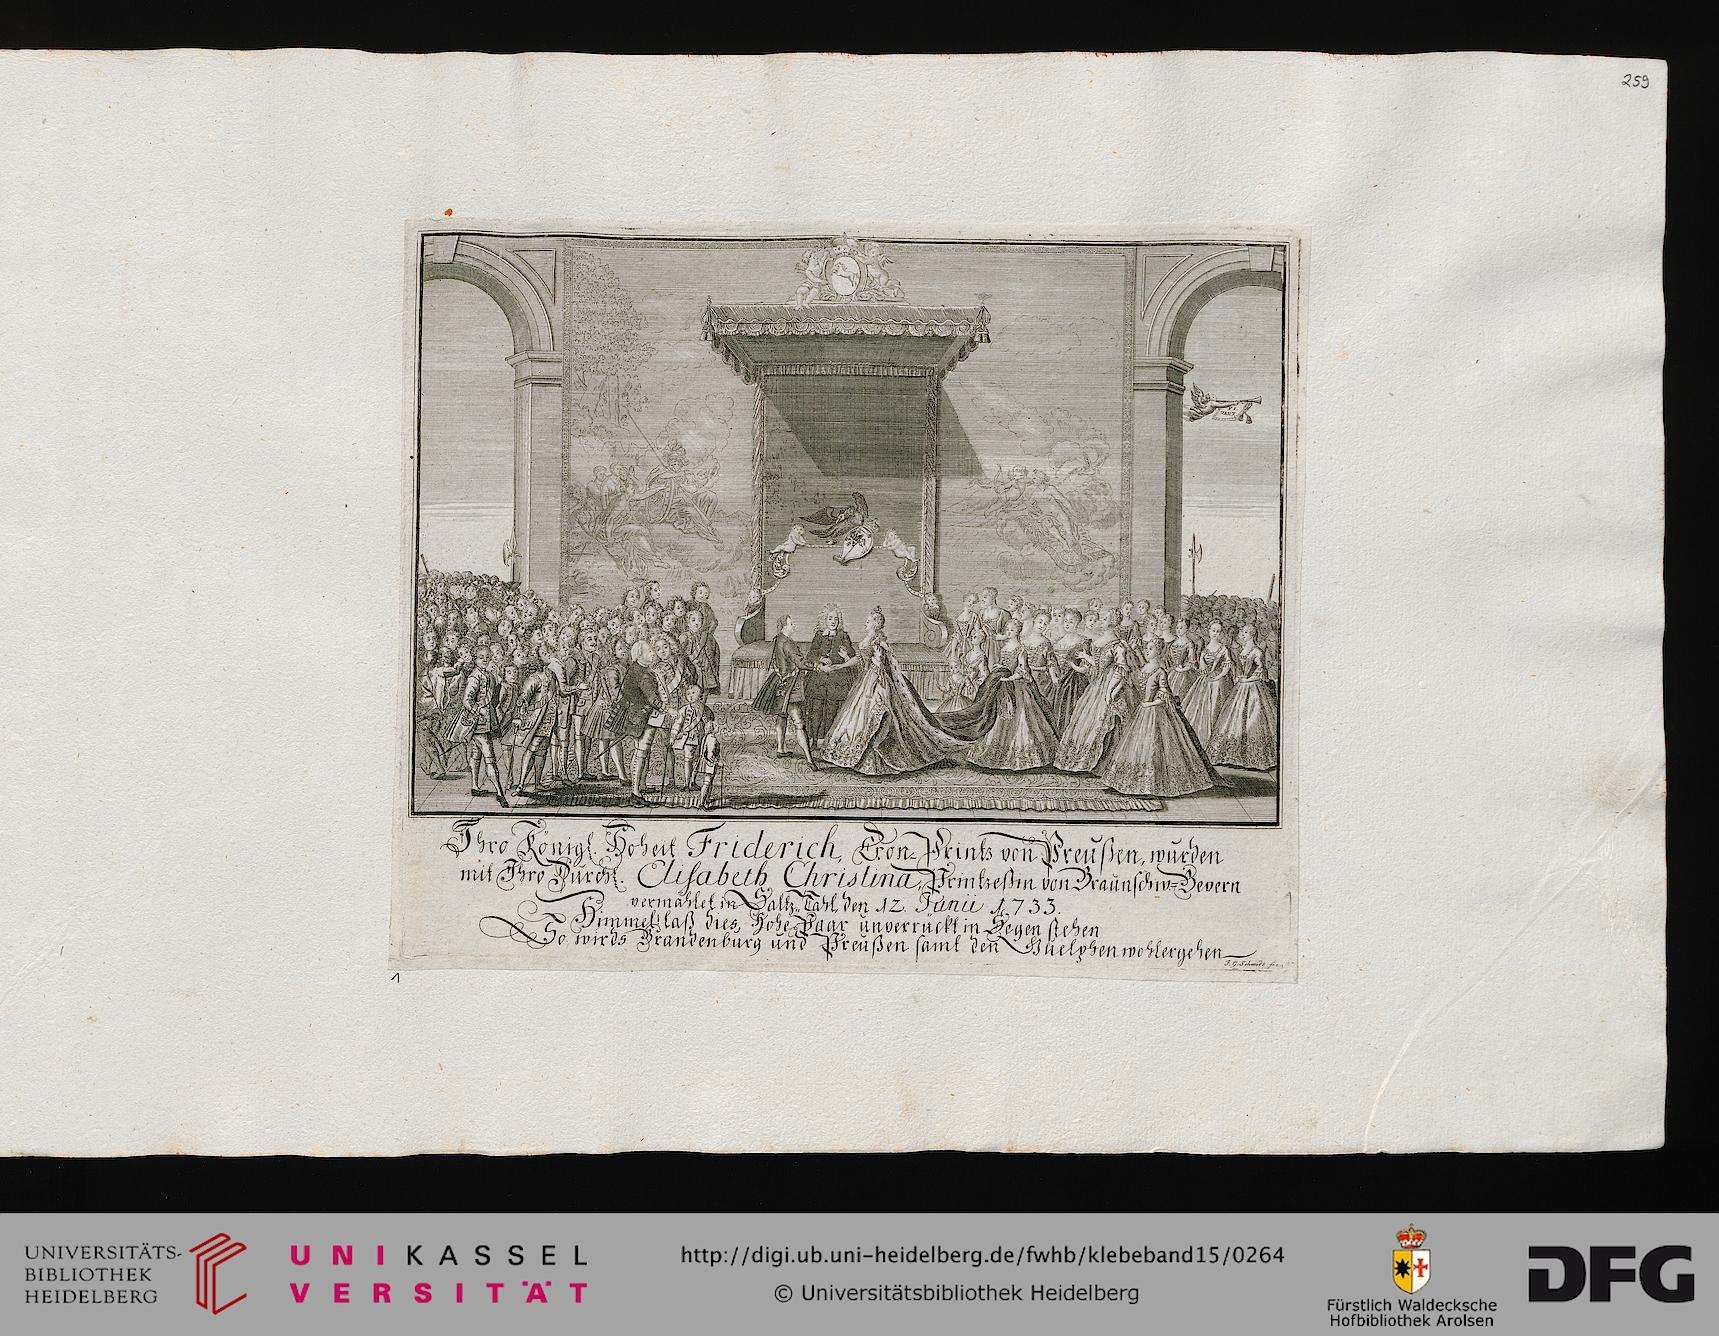 259
Ihro Königl. Hoheit Friderich, Cron-Printz von Preußen, wurden
mit Ihro Durchl. Elisabeth Christina, Printzeßin von Braunschw=Bevern
vermählet in Saltz-Tahl, den 12. Junii 1733.
Himmel! laß dies Hohe Paar unverrückt in Segen stehen
So wirds Brandenburg und Preußen samt den Guelphen wohlergehen
J. G. Schmidt fec.
1
UNIVERSITÄTS-
BIBLIOTHEK
HEIDELBERG
UNIKASSEL
VERSITÄT
http://digi.ub.uni-heidelberg.de/fwhb/klebeband15/0264
© Universitätsbibliothek Heidelberg
Fürstlich Waldecksche
Hofbibliothek Arolsen
DFG